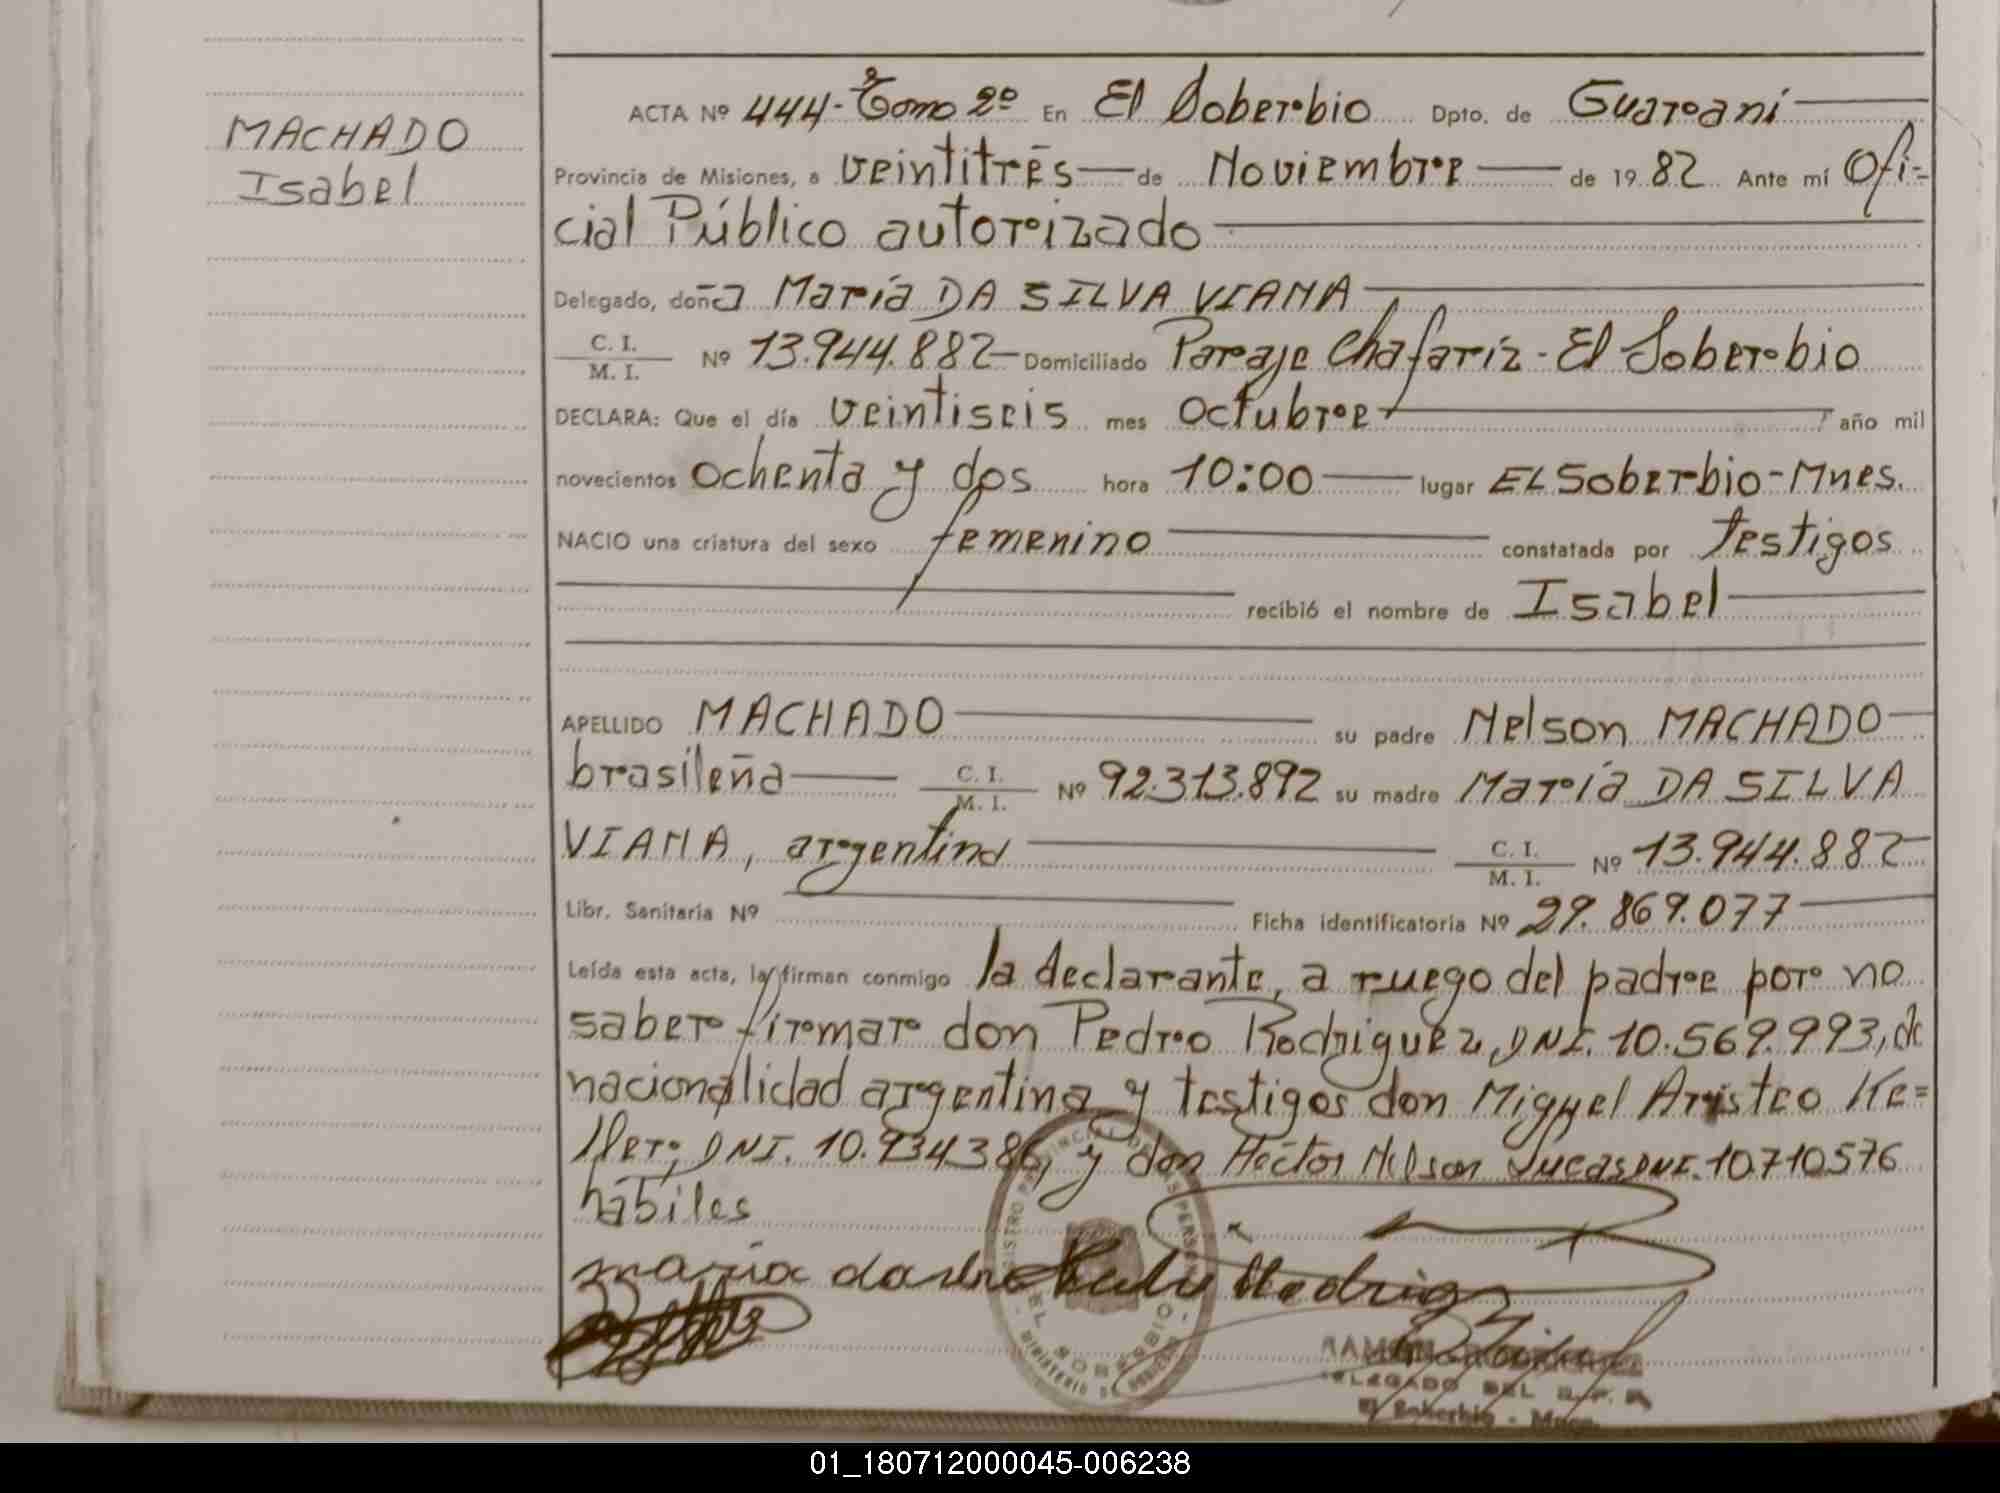 MACHADO
Isabel
ACTA Nº 444- Tomo 2º En El Soberbio Dpto. de Guaraní
Provincia de Misiones, a veintitrés de Noviembre de 1982 Ante mí Ofi-
cial Público autorizado
Delegado, doña María DA SILVA VIANA
C. I.
M. I. Nº 13.944.882 Domiciliado Paraje Chafariz - El Soberbio
DECLARA: Que el día veintiseis mes octubre, año mil
novecientos ochenta y dos hora 10:00 lugar EL Soberbio-Mnes.
NACIO una criatura del sexo femenino constatada por testigos
recibió el nombre de Isabel
APELLIDO MACHADO su padre Nelson MACHADO
brasileña C. I.
M. I. Nº 92.313.892 su madre María DA SILVA
VIANA, argentina C. I.
M. I. Nº 13.944.882
Libr. Sanitaria Nº Ficha identificatoria Nº 29.869.077
Leída esta acta, la firman conmigo la declarante, a ruego del padre por no
saber firmar don Pedro Rodriguez, DNI. 10.569.993, de
nacionalidad argentina y testigos don Miguel Aristeo Ke=
ller, DNI. 10.934386, y don Héctor Nelson Lucas DNI. 10.710.576
hábiles
maria da
REGISTRO PROVINCIAL DE LAS PERSONAS
EL SOBERBIO
MINISTERIO DE
DELEGADO DEL R. P. P.
El Soberbio - Mnes.
01_180712000045-006238